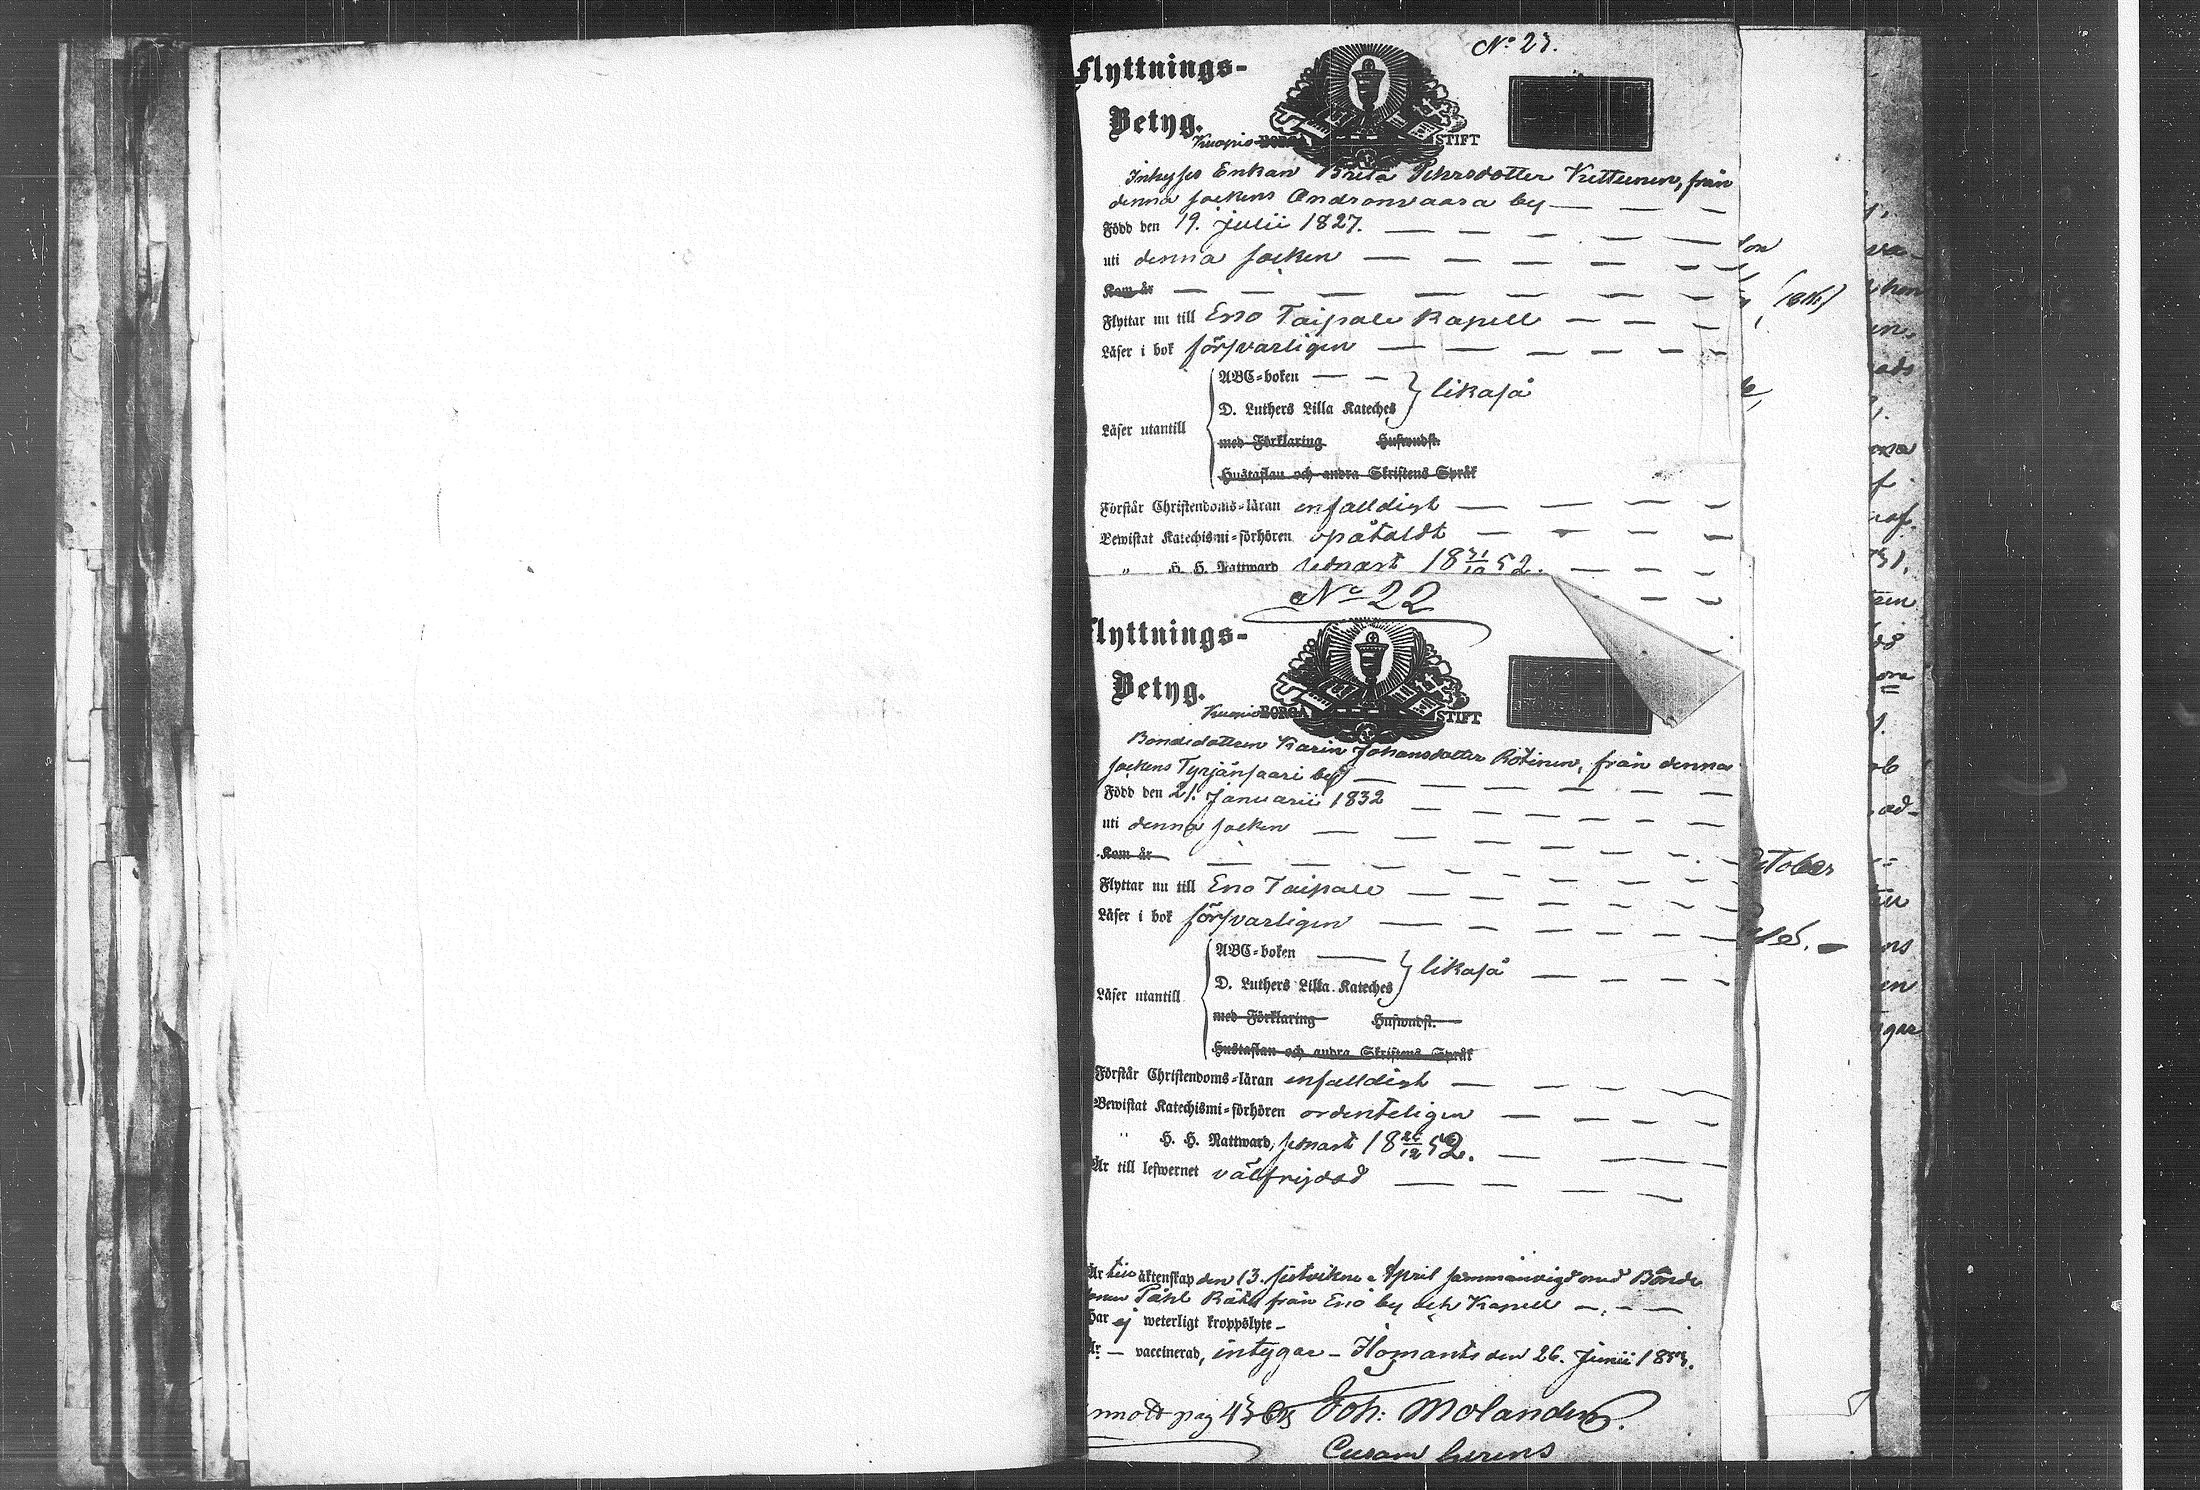 No 23.
Flyttnings-
Betyg.
Kuopio BORGÅ STIFT
Inhyses Enkan Brita Pehrsdotter Kettunen, från
denna sockens Andronvaara by
Född den 19. Julii 1827.
uti denna socken
Kom år
Flyttar nu till Eno Taipale Kapell
Läser i bok försvarligen
ABC-boken
D. Luthers Lilla Kateches likaså
Läser utantill
med Förklaring Hufwudst.
Hustaflan och andra Skriftens Språk
Förstår Christendoms-läran enfaldigt
Bewistat Katechismi-förhören opåtaldt
" H. H. Nattward sednast 18 31/10 52.
No 22
Flyttnings-
Betyg.
Kuopio BORGÅ STIFT
Bondedottren Karin Johansdotter Rötinen, från denna
sockens Tyrjänsaari by
Född den 21. Januarii 1832
uti denna socken
Kom år
Flyttar nu till Eno Taipale
Läser i bok försvarligen
ABC-boken
D. Luthers Lilla Kateches likaså
Läser utantill
med Förklaring Hufwudst.
Hustaflan och andra Skriftens Språk
Förstår Christendoms-läran enfaldigt
Bewistat Katechismi-förhören ordenteligen
" H. H. Nattward, sednast 18 26/12 52.
Är till lefwernet välfrejdad
Är till äktenskap den 13. sistvikne April sammanvigd med Bonde
sonen Påhl Räty från Eno by och Kapell
Har ej weterligt kroppslyte
Är vaccinerad, intygar - Ilomants den 26. Junii 1853.
pag 436 Joh: Molander.
Curam Gerens
October